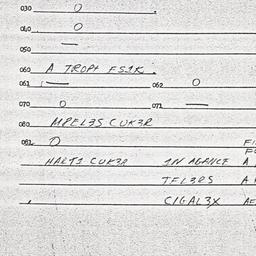 030 O
040 O
050 —
060 A TROPT FS1K.
061 — 062 O
070 O 071 —
080 MPEL3S CUK3R
081 O
HART1 CUK3R 1N AGANCE A
TFL3RS A
C1GAL3X